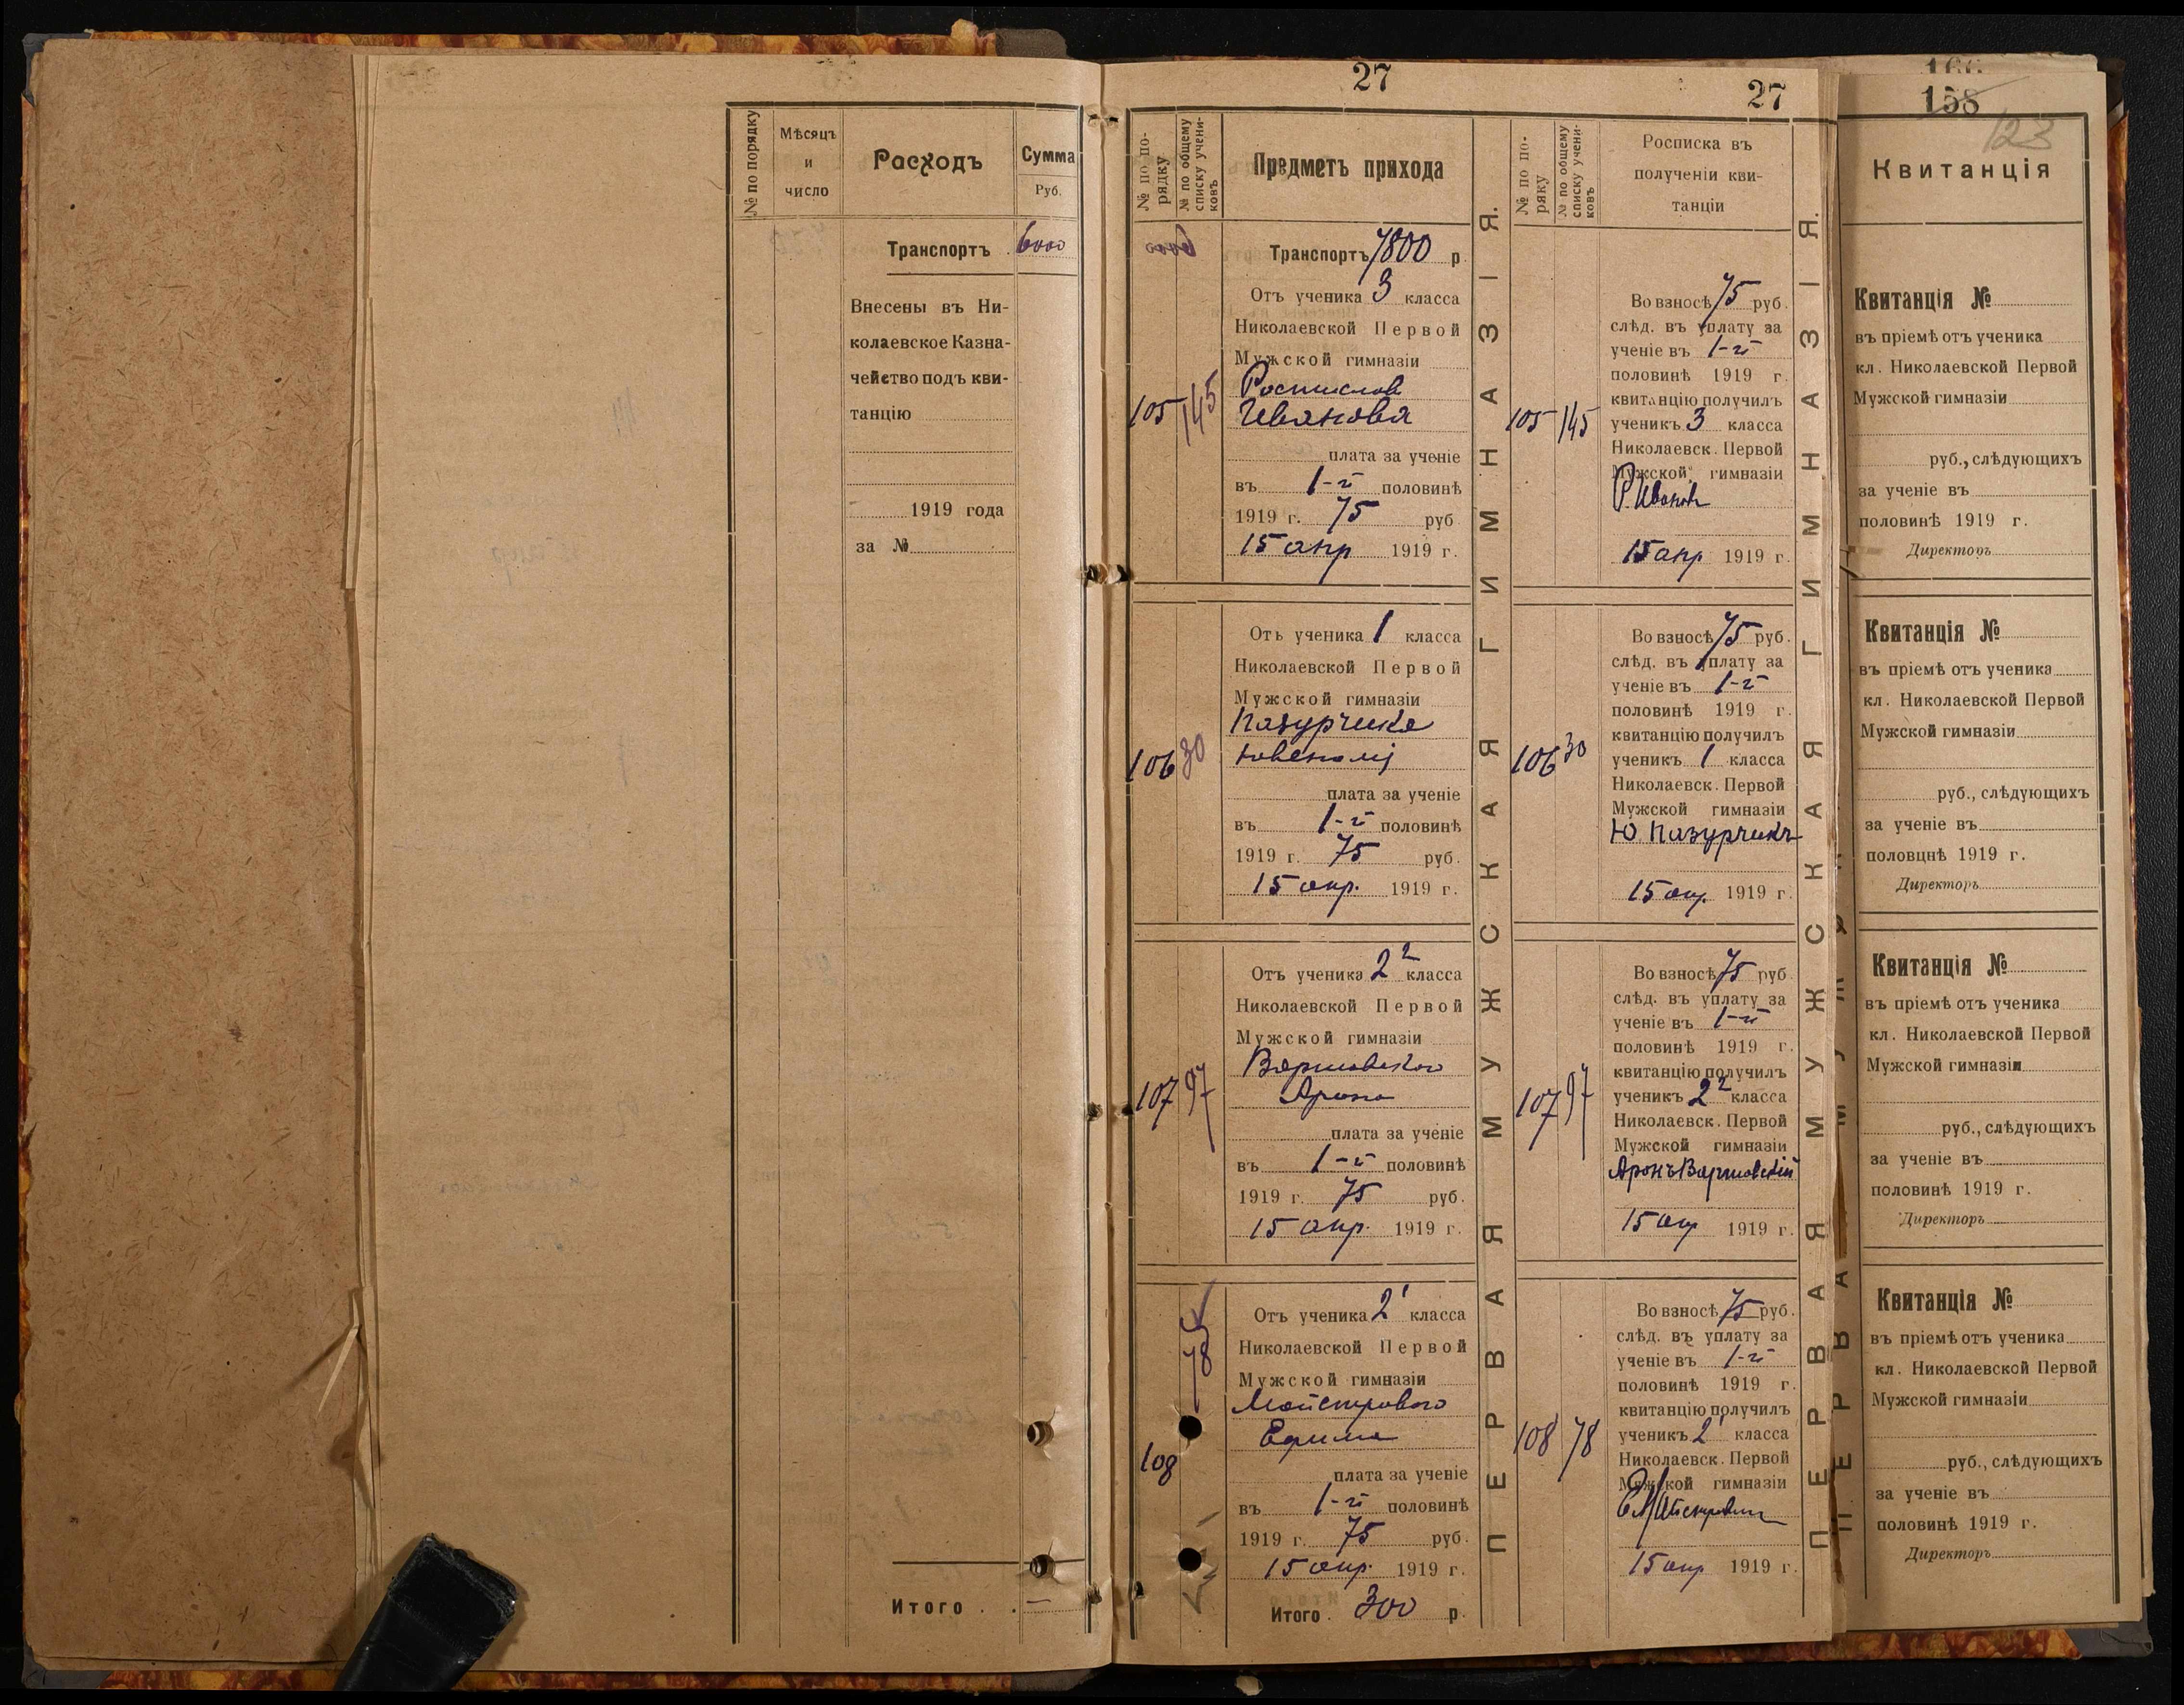 № по порядку
Мѣсяцъ
и
число
Расходъ
Сумма
Руб.
Транспортъ . 6000
Внесены въ Ни-
колаевское Казна-
чейство подъ кви-
танцію
1919 года
за №
Итого . . —
27
№ по по-
рядку
№ по общему
списку учени-
ковъ
Предметъ прихода
6000
Транспортъ 7800 р.
105 145
Отъ ученика 3 класса
Николаевской Первой
Мужской гимназіи
Ростислава
Иванова
плата за ученіе
въ 1-й половинѣ
1919 г. 75 руб
15 апр 1919 г.
106 30
Отъ ученика 1 класса
Николаевской Первой
Мужской гимназіи
Пазурчика
плата за ученіе
въ 1-й половинѣ
1919 г. 75 руб.
15 апр. 1919 г.
107 97
Отъ ученика 2² класса
Николаевской Первой
Мужской гимназіи
Варшавского
Арона
плата за ученіе
въ 1-й половинѣ
1919 г. 75 руб.
15 апр. 1919 г.
108 78
Отъ ученика 2¹ класса
Николаевской Первой
Мужской гимназіи
Майстрового
Ефима
плата за ученіе
въ 1-й половинѣ
1919 г. 75 руб.
15 апр. 1919 г.
Итого . 300 р.
ПЕРВАЯ МУЖСКАЯ ГИМНАЗІЯ.
27
№ по по-
ряку
№ по общему
списку учени-
ковъ
Росписка въ
полученіи кви-
танціи
105 145
Во взносѣ 75 руб.
слѣд. въ уплату за
ученіе въ 1-й
половинѣ 1919 г.
квитанцію получилъ
ученикъ 3 класса
Николаевск. Первой
Мужской гимназіи
Р. Ивановъ
15 апр 1919 г.
106 30
Во взносѣ 75 руб.
слѣд. въ уплату за
ученіе въ 1-й
половинѣ 1919 г.
квитанцію получилъ
ученикъ 1 класса
Николаевск. Первой
Мужской гимназіи
Ю. Пазурчикъ
15 апр. 1919 г.
107 97
Во взносѣ 75 руб
слѣд. въ уплату за
ученіе въ 1-й
половинѣ 1919 г.
квитанцію получилъ
ученикъ 2² класса
Николаевск. Первой
Мужской гимназіи
Аронъ Варшавскій
15 апр 1919 г.
108 78
Во взносѣ 75 руб.
слѣд. въ уплату за
ученіе въ 1-й
половинѣ 1919 г.
квитанцію получилъ
ученикъ 2¹ класса
Николаевск. Первой
Мужской гимназіи
15 апр 1919 г.
ПЕРВАЯ МУЖСКАЯ ГИМНАЗІЯ.
166
158
123
Квитанція
Квитанція №
въ пріемѣ отъ ученика
кл. Николаевской Первой
Мужской гимназіи
руб., слѣдующихъ
за ученіе въ
половинѣ 1919 г.
Директоръ
Квитанція №
въ пріемѣ отъ ученика
кл. Николаевской Первой
Мужской гимназіи
руб., слѣдующихъ
за ученіе въ
половцнѣ 1919 г.
Директоръ
Квитанція №
въ пріемѣ отъ ученика
кл. Николаевской Первой
Мужской гимназіи
руб., слѣдующихъ
за ученіе въ
половинѣ 1919 г.
Директоръ
Квитанція №
въ пріемѣ отъ ученика
кл. Николаевской Первой
Мужской гимназіи
руб., слѣдующихъ
за ученіе въ
половинѣ 1919 г.
Директоръ